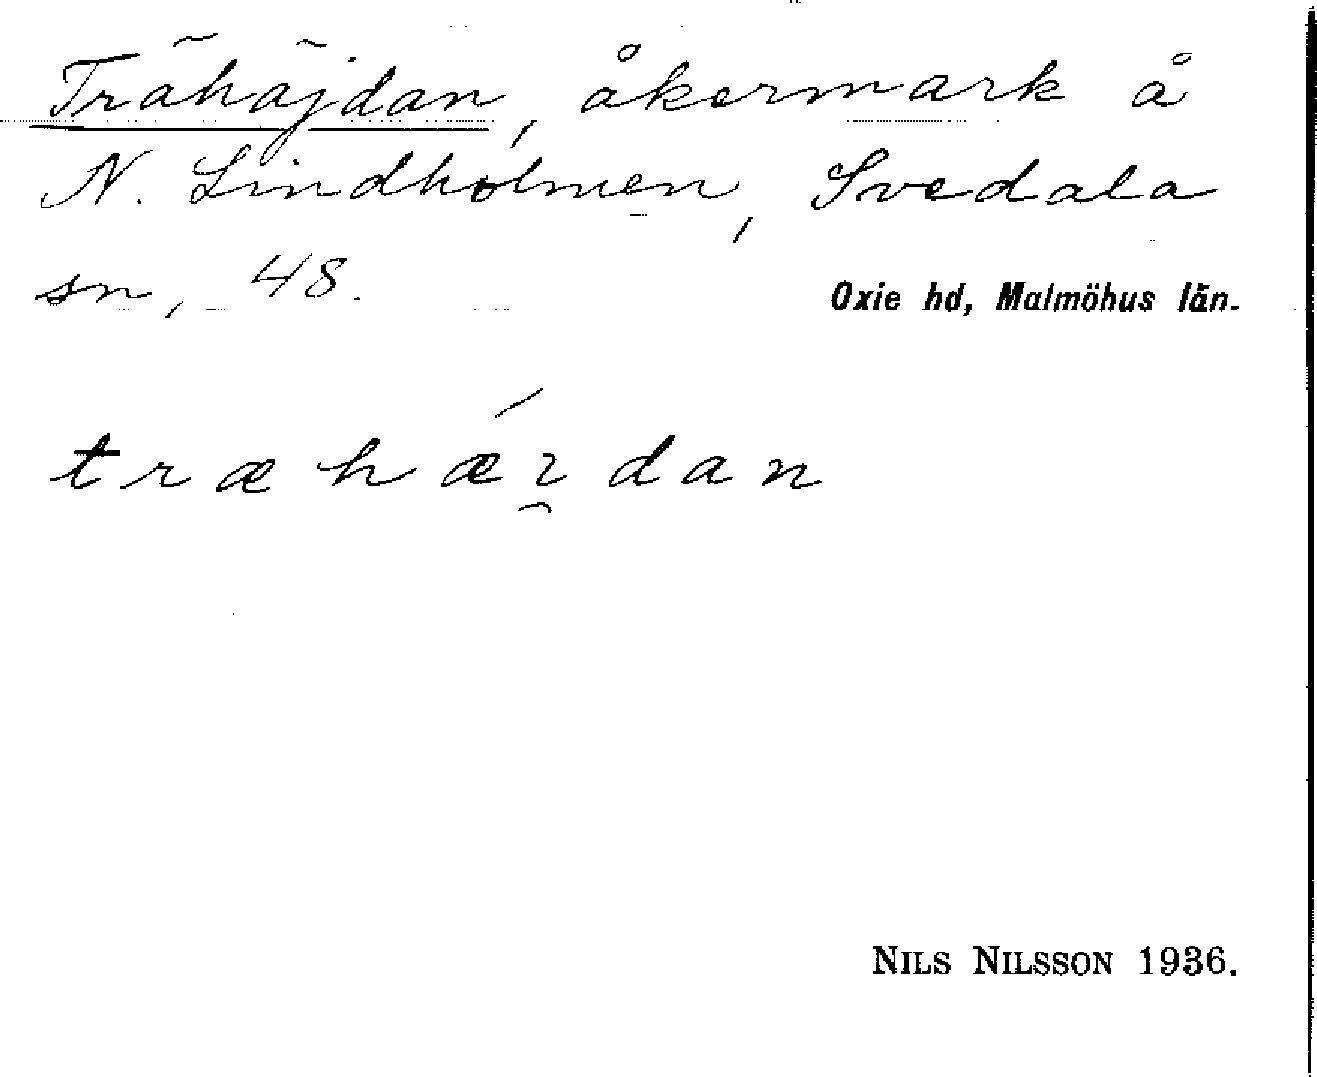 Trähäjdan, åkermark å
N. Lindholmen, Svedala
sn, 48.
Oxie hd, Malmöhus län.
træhǽı̯dan
NILS NILSSON 1936.